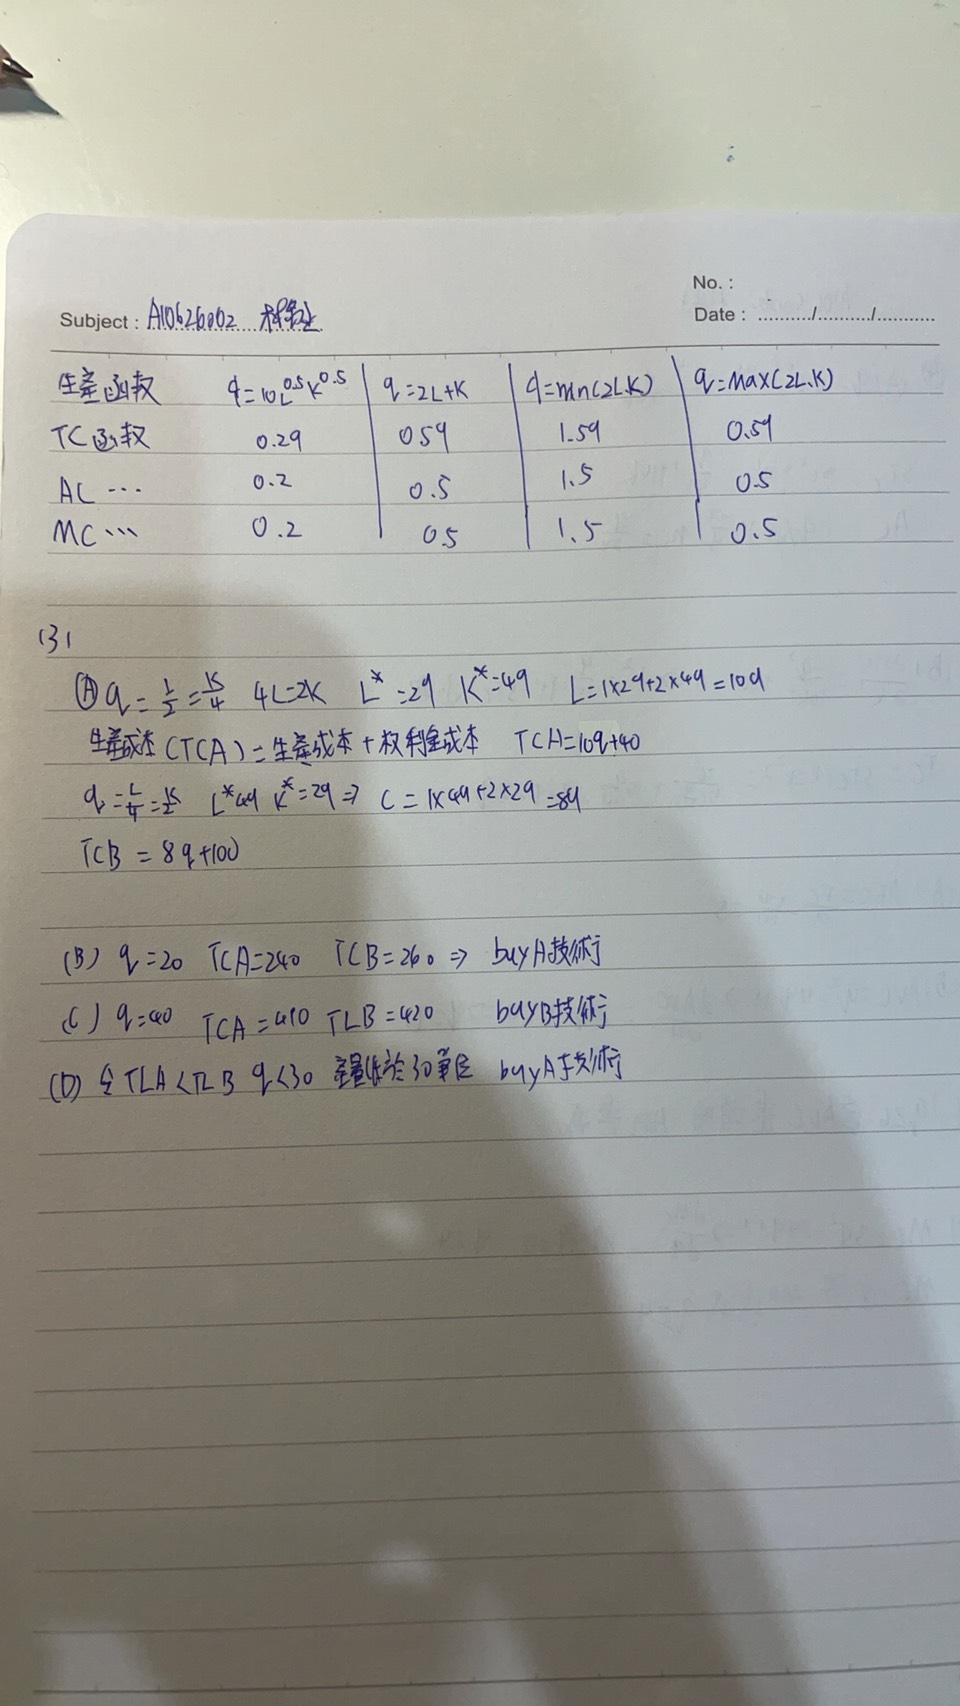 No. :
Subject : A10626002
Date : ........../........../...........
生產函数 q=10L^0.5K^0.5 q=2L+K q=min(2L.K) q=Max(2L.K)
TC函数 0.2q 0.5q 1.5q 0.5q
AC … 0.2 0.5 1.5 0.5
MC … 0.2 0.5 1.5 0.5
(3)
(A) q = L/2 = K/4 4L=2K L*=2q K*=4q L=1×2q+2×4q=10q
生產成本(TCA)=生產成本+权利金成本 TCA=10q+40
q=L/4=K/2 L*4q K*=2q ⇒ C=1×4q+2×2q=8q
TCB = 8q+100
(B) q=20 TCA=240 TCB=260 ⇒ buyA技術
(C) q=40 TCA=410 TCB=420 buyB技術
(D) 令TCA<TCB q<30 產量低於30單位 buyA技術